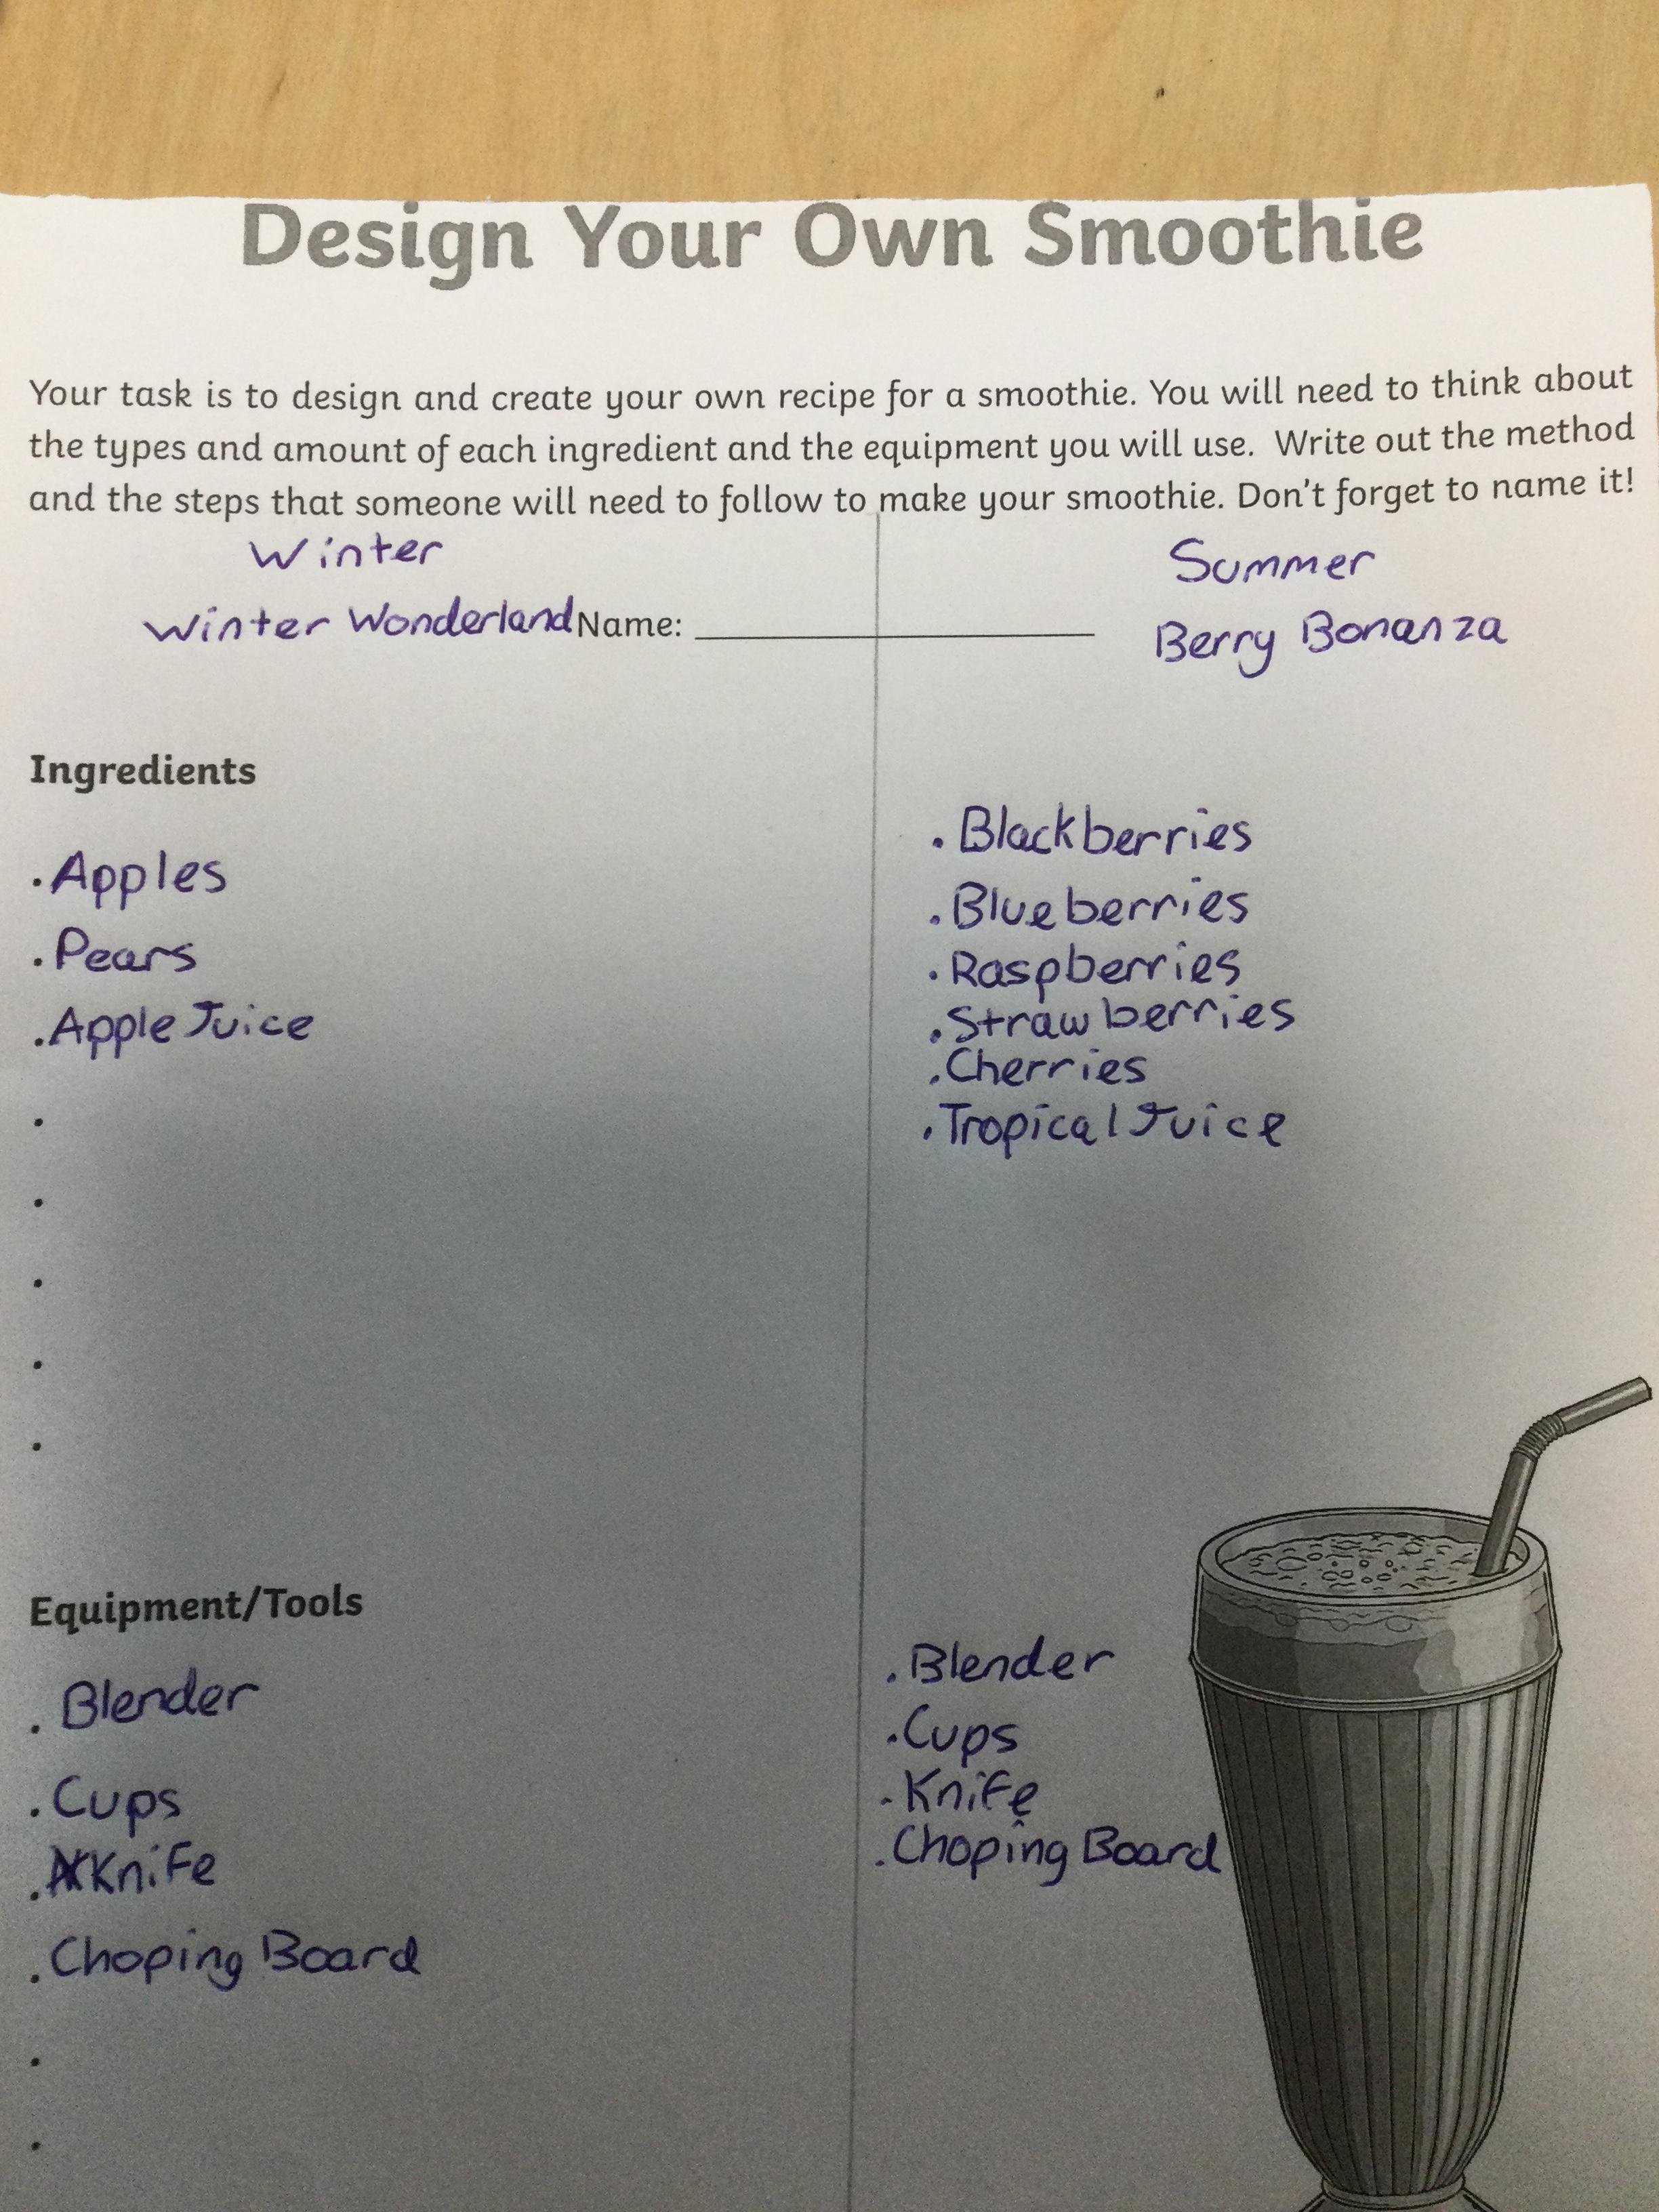 Design Your Own Smoothie
Your task is to design and create your own recipe for a smoothie. You will need to think about
the types and amount of each ingredient and the equipment you will use. Write out the method
and the steps that someone will need to follow to make your smoothie. Don't forget to name it!
Winter
Winter Wonderland Name:
Summer
Berry Bonanza
Ingredients
. Apples
. Pears
. Apple Juice
. Blackberries
. Blueberries
. Raspberries
. Strawberries
. Cherries
. Tropical Juice
Equipment/Tools
. Blender
. Cups
. Knife
. Choping Board
. Blender
. Cups
. Knife
. Choping Board